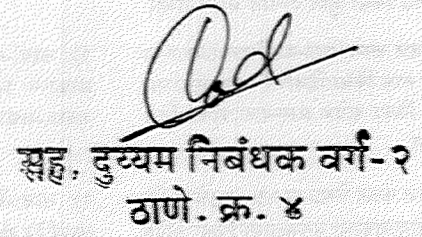 सह. दुय्यम निबंधक वर्ग-२
ठाणे. क्र. ४